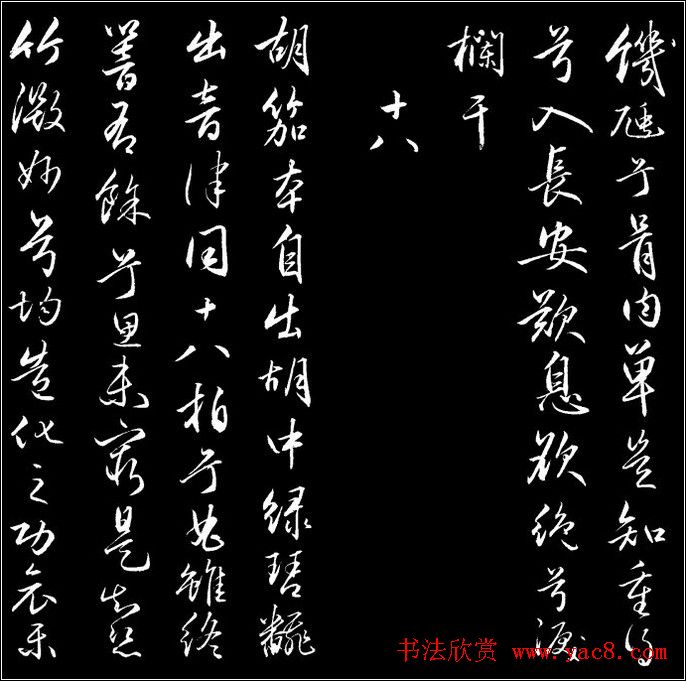 饑羸兮骨肉單豈知重得
兮入長安歎息欲絕兮淚
欄干
十八
胡笳本自出胡中緑琴飜
出音律同十八拍兮曲雖終
響有餘兮思未窮是知絲
竹微妙兮均造化之功哀樂
书法欣赏 www.yac8.com